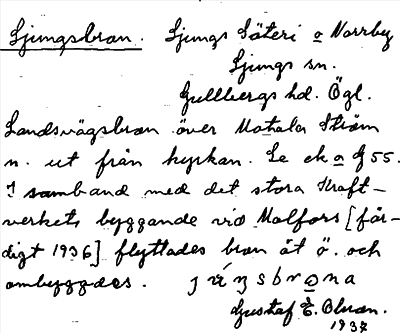 Ljungsbron. Ljungs Säteri o Norrby
Ljungs sn.
Gullbergs hd. Ögl.
Landsvägsbron över Motala Ström
n. ut från kyrkan. Se ek a df 55.
I samband med det stora Kraft-
verkets byggande vid Malfors [fär-
digt 1936] flyttades bron åt ö. och
ombyggdes.
Gustaf E. Olsson.
1937